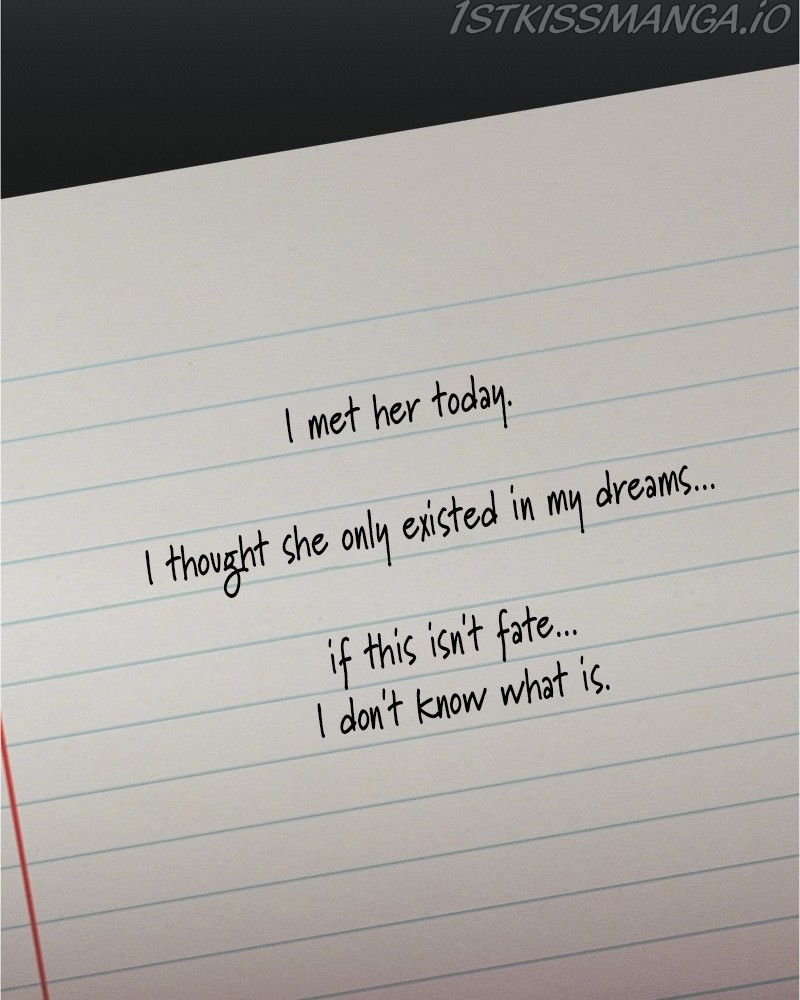 1STKISSMANGA.IO
I met her today.
I thought she only existed in my dreams...
if this isn't fate...
I don't know what is.